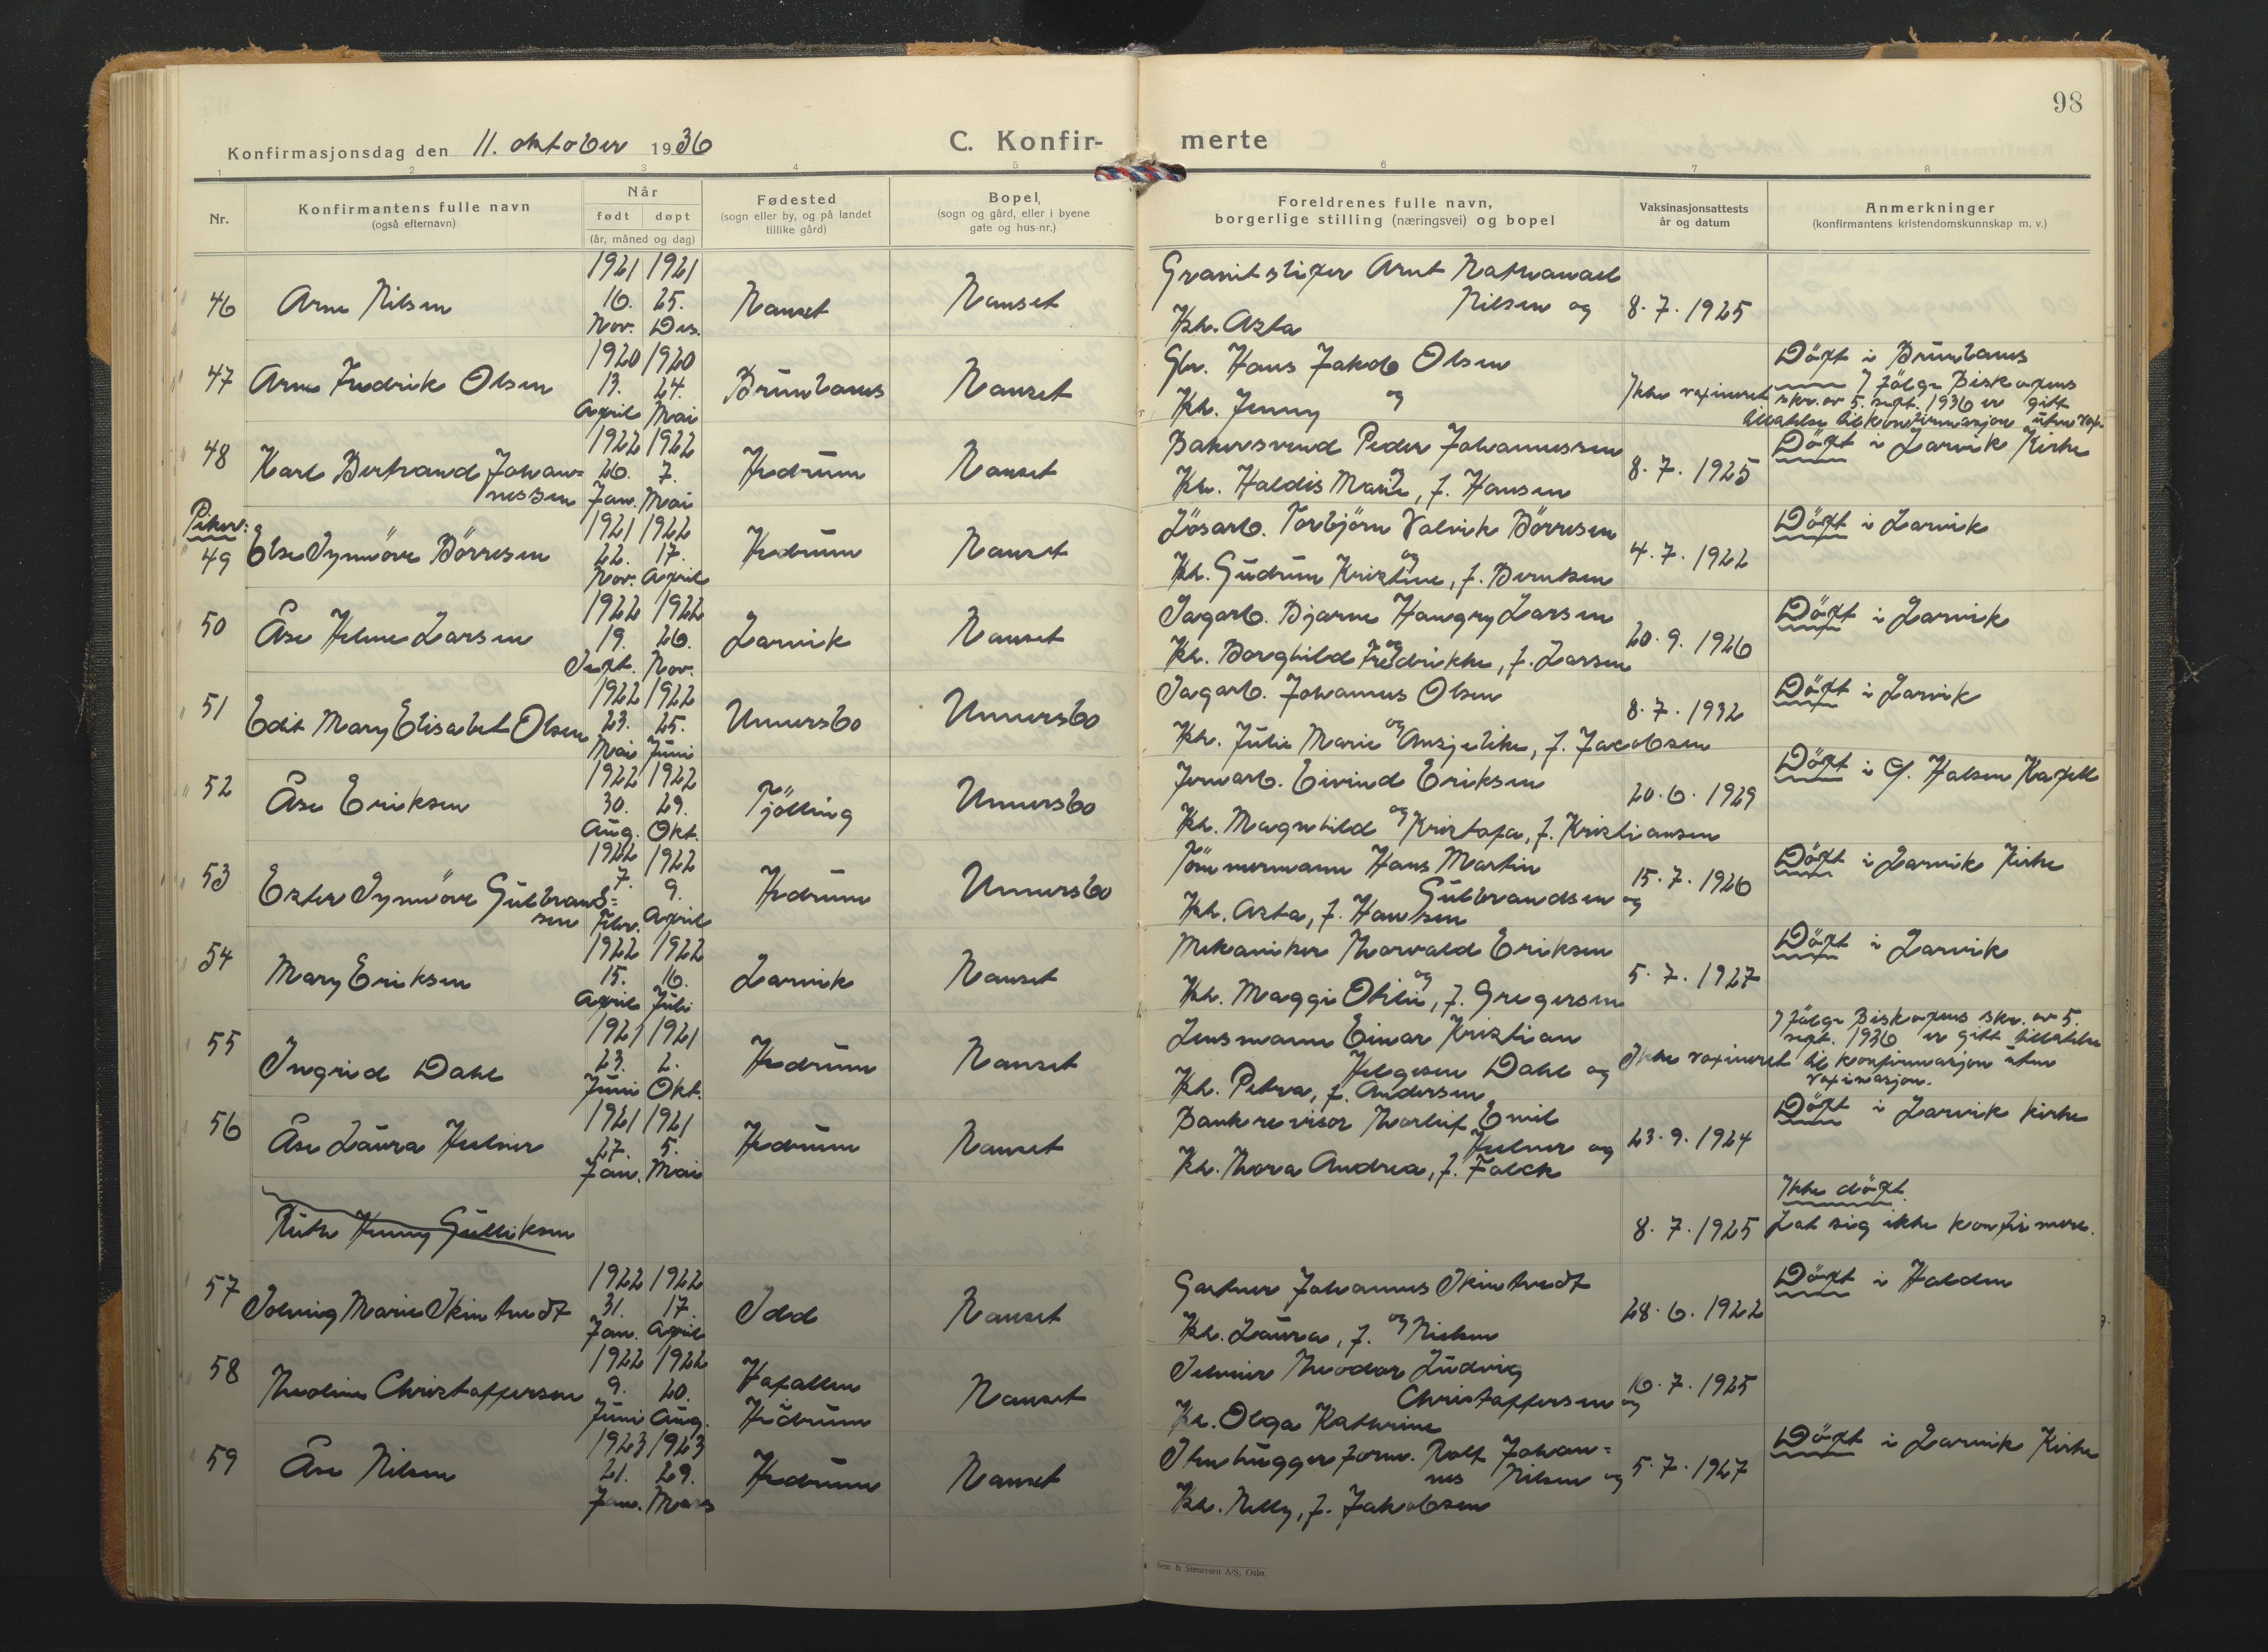 98
Konfirmasjonsdag den 11. oktober 1936
C. Konfir- merte
1 2 3 4 5 6 7 8
Nr.
Konfirmantens fulle navn
(også efternavn)
Når
født døpt
(år, måned og dag)
Fødested
(sogn eller by, og på landet
tillike gård)
Bopel,
(sogn og gård, eller i byene
gate og hus-nr.)
Foreldrenes fulle navn,
borgerlige stilling (næringsvei) og bopel
Vaksinasjonsattests
år og datum
Anmerkninger
(konfirmantens kristendomskunnskap m. v.)
46 Arne Nilsen
1921 1921
16. 25.
Nov. Des.
Nanset
Nanset
Granitsliper Arnt Nathanael
Nilsen og
Kh. Asta
8. 7. 1925
47 Arne Fredrik Olsen
1920 1920
13. 24.
April Mai
Brunlanes
Nanset
Gbr. Hans Jakob Olsen
og
Kh. Jenny
Ikke vaxineret
Döpt i Brunlanes
I fölge Biskopens
skr. av 5. sept. 1936 er gitt
tillatelse til konfirmasjon uten vax.
48 Karl Bertrand Johan=
nessen
1922 1922
26. 7.
Jan. Mai
Hedrum
Nanset
Bakersvend Peder Johannessen
og
Kh. Haldis Marie, f. Hansen
8. 7. 1925
Döpt i Larvik Kirke
Piker:
49 Else Synnöve Börresen
1921 1922
22. 17.
Nov. April
Hedrum
Nanset
Lösarb. Torbjörn Valvik Börresen
og
Kh. Gudrun Kristine, f. Berntsen
4. 7. 1922
Döpt i Larvik
50 Åse Helene Larsen
1922 1922
19. 26.
Sept. Nov.
Larvik
Nanset
Sagarb. Bjarne Hangry Larsen
og
Kh. Borghild Fredrikke, f. Larsen
20. 9. 1926
Döpt i Larvik
51 Edit Mary Elisabet Olsen
1922 1922
23. 25.
Mai Juni
Unnersbo
Unnersbo
Sagarb. Johannes Olsen
og
Kh. Julie Marie Ansjelike, f. Jacobsen
8. 7. 1932
Döpt i Larvik
52 Åse Eriksen
1922 1922
30. 29.
Aug. Okt.
Tjölling
Unnersbo
Jernarb. Eivind Eriksen
og
Kh. Magnhild Kristofa, f. Kristiansen
20. 6. 1929
Döpt i Ö. Halsen Kapell
53 Ester Synnöve Gulbrand=
sen
1922 1922
7. 9.
Febr. April
Hedrum
Unnersbo
Tömmermann Hans Martin
Gulbrandsen og
Kh. Asta, f. Hansen
15. 7. 1926
Döpt i Larvik Kirke
54 Mary Eriksen
1922 1922
15. 16.
April Juli
Larvik
Nanset
Mekaniker Thorvald Eriksen
og
Kh. Maggi Otilie, f. Gregersen
5. 7. 1927
Döpt i Larvik
55 Ingrid Dahl
1921 1921
23. 2.
Juni Okt.
Hedrum
Nanset
Lensmann Einar Kristian
Helgesen Dahl og
Kh. Petra, f. Andersen
Ikke vaxineret
I fölge Biskopens skr. av 5.
sept. 1936 er gitt tillatelse
til konfirmasjon uten
vaxinasjon.
56 Åse Laura Helner
1921 1921
27. 5.
Jan. Mai
Hedrum
Nanset
Bankrevisor Thorleif Emil
Helner og
Kh. Thora Andrea, f. Falck
23. 9. 1924
Döpt i Larvik kirke
Ruth Henny Gulliksen
8. 7. 1925
Ikke döpt.
Lot sig ikke konfirmere.
57 Solveig Marie Skintvedt
1922 1922
31. 17.
Jan. April
Idd
Nanset
Gartner Johannes Skintvedt
og
Kh. Laura, f. Nielsen
28. 6. 1922
Döpt i Halden
58 Theoline Christoffersen
1922 1922
9. 20.
Juni Aug.
Hedrum
Nanset
Theodor Ludvig
Christoffersen og
Kh. Olga Kathrine
16. 7. 1925
59 Åse Nilsen
1923 1923
21. 29.
Jan. Mars
Hedrum
Nanset
Stenhuggerform. Rolf Johan=
nes Nilsen og
Kh. Nelly, f. Jakobsen
5. 7. 1927
Döpt i Larvik Kirke
Sem & Stenersen A/S, Oslo.